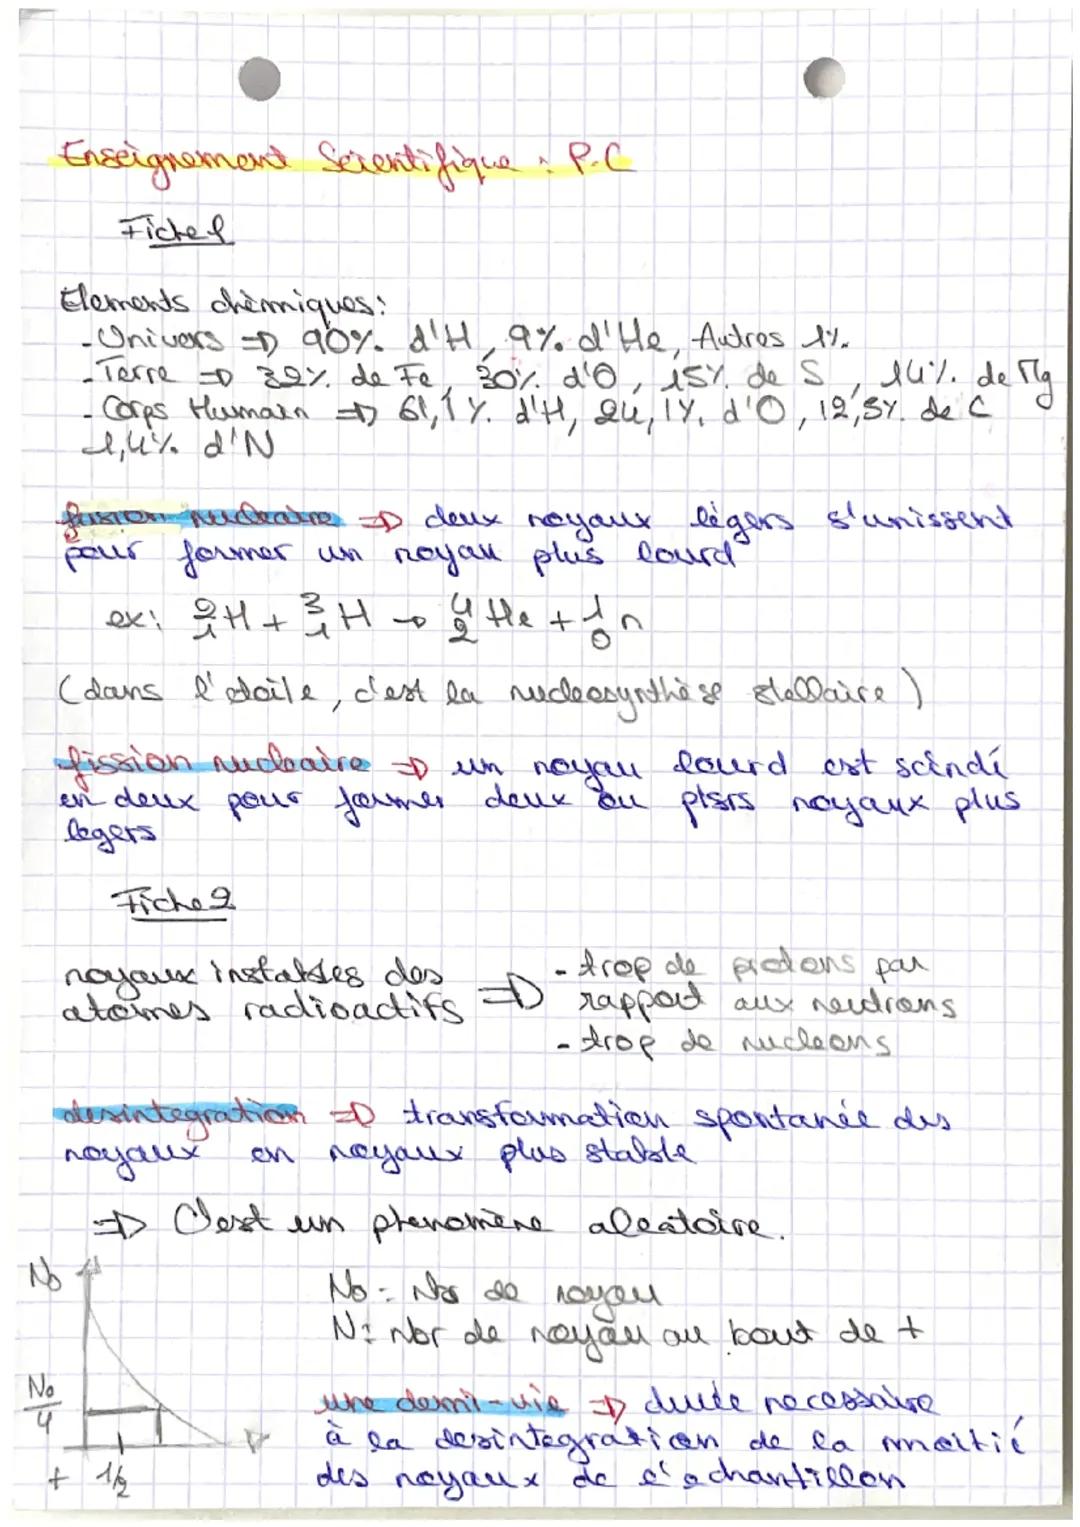 Enseignement Scientifique : P.C
Fiche 1
Elements chimiques:
- Univers => 90% d'H, 9% d'He, Autres 1%.
- Terre => 32% de Fe, 30% d'O, 15% de S, 14% de Mg
- Corps Humain => 61,1%. d'H, 24,1%. d'O, 12,5%. de C
1,4% d'N
fusion nucleaire => deux noyaux légers s'unissent
pour former un noyau plus lourd
ex: ²₁H + ³₁H → ⁴₂He + ¹₀n
(dans l'etoile, c'est la nucleosynthèse stellaire)
fission nucleaire => un noyau lourd est scindé
en deux pour former deux ou plsrs noyaux plus
legers
Fiche 2
noyaux instables des
atomes radioactifs =>
- trop de protons par
rapport aux neutrons
- trop de nucleons
desintegration => transformation spontanée des
noyaux en noyaux plus stable
=> C'est un phenomène aleatoire.
No
No = Nbr de noyau
N: Nbr de noyau au bout de t
No/4
t 1/2
une demi-vie => durée necessaire
à la desintegration de la moitié
des noyaux de l'echantillon